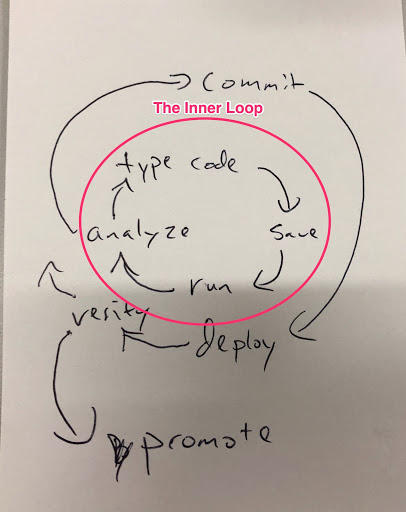 Commit
The Inner Loop
type code
analyze
save
run
verify
deploy
promote